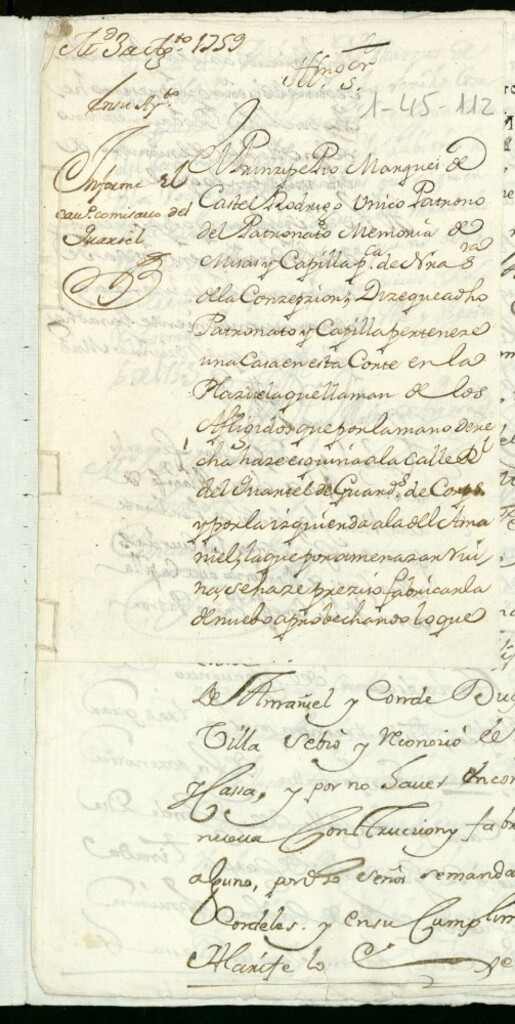 M.d 3 de Ag.to 1759
Illmo Señor
S.
En su Ay.to
1-45-112
Informe el
cau.o comisario del
quartel
El Principe Pio Marques de
Castel Rodrigo Unico Patrono
del Patronato Memoria de
Misas y Capilla p.ca de Nra S.ra
de la Conzepzion; Dize que a dho
Patronato y Capilla perteneze
una Casa en esta Corte en la
Plazuela que llaman de los
Afligidos que por la mano dere
cha haze esquina a la calle Rl
del Quartel de Guard.s de Corps
y por la izquierda a la del Ama
niel, la que por amenazar Rui
na, se haze preziso fabricarla
de nuebo aprobechando lo que
de Amaniel y Conde Du
Villa se bio y reconozio el
Cassa, y por no haver
nueva Construcion y fabr
alguno, por dho señor se manda
Cordeles. y en su Cumplim
Alarife lo